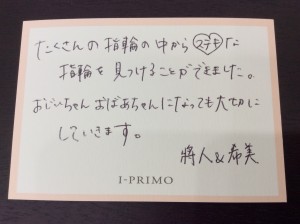 たくさんの指輪の中からステキな
指輪を見つけることができました。
おじいちゃんおばあちゃんになっても大切に
していきます。
將人&希美
I-PRIMO